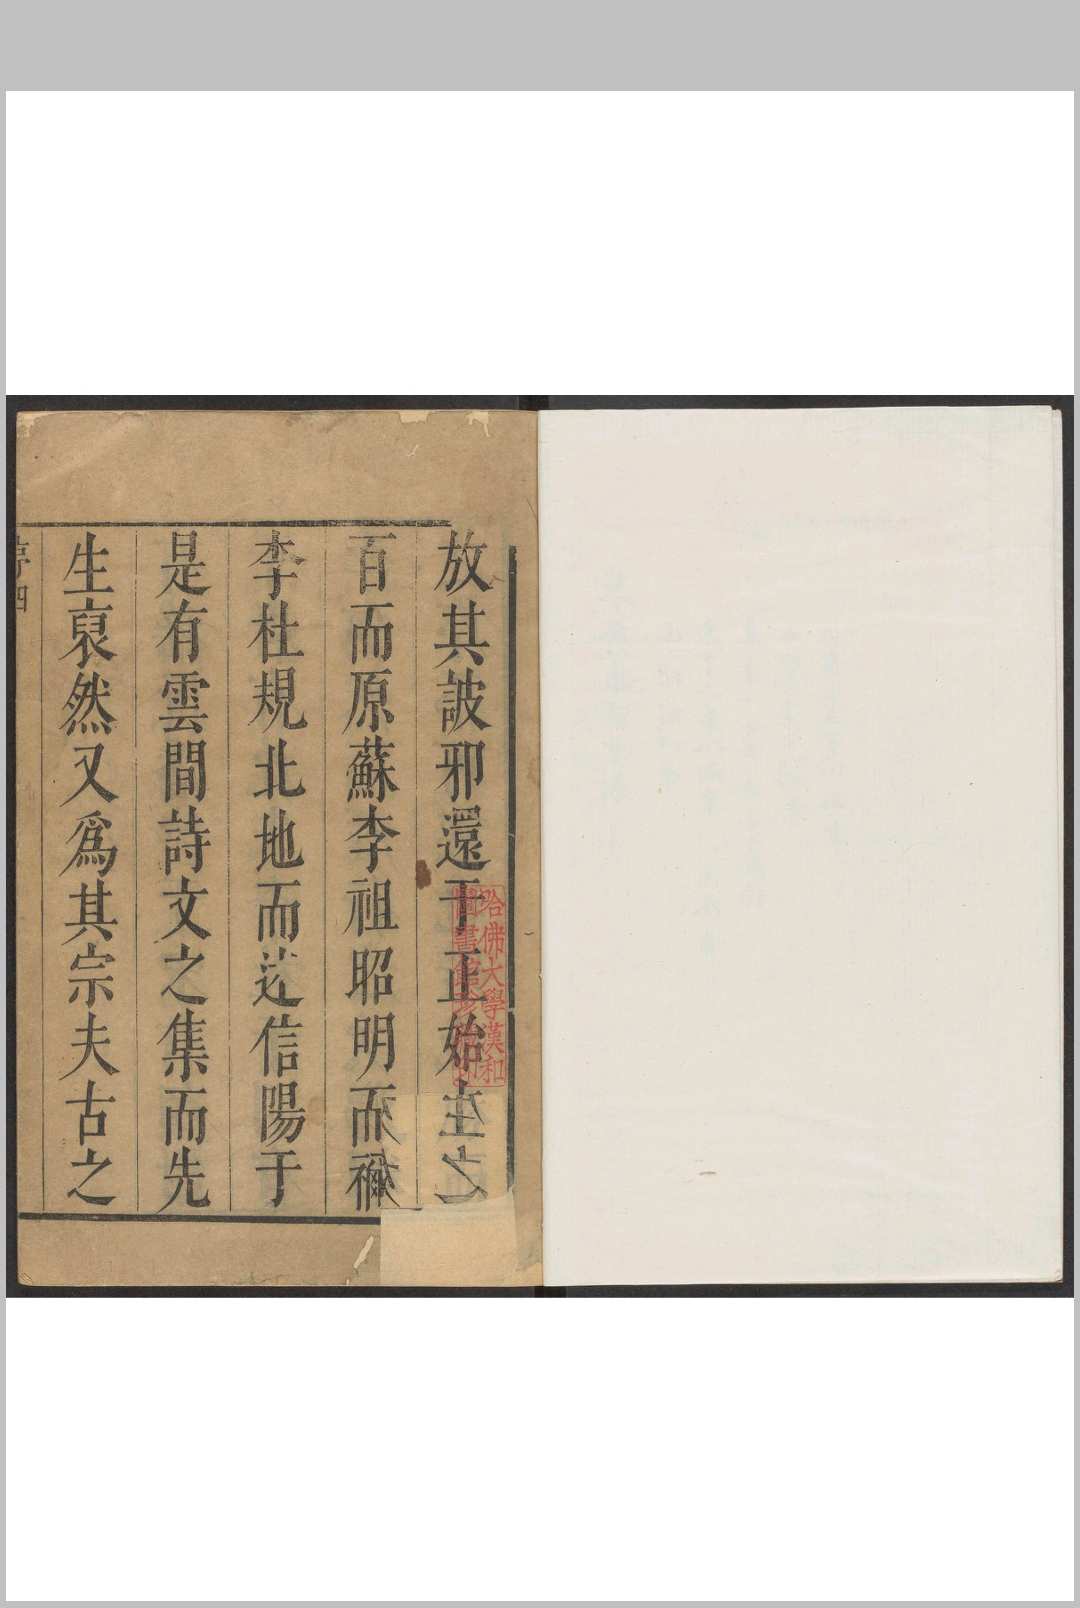 放其詖邪還于正始主之
百而原蘇李祖昭明而禰
李杜規北地而迯信陽于
是有雲間詩文之集而先
生裒然又爲其宗夫古之
序四
哈佛大學漢和
圖書館珍藏印